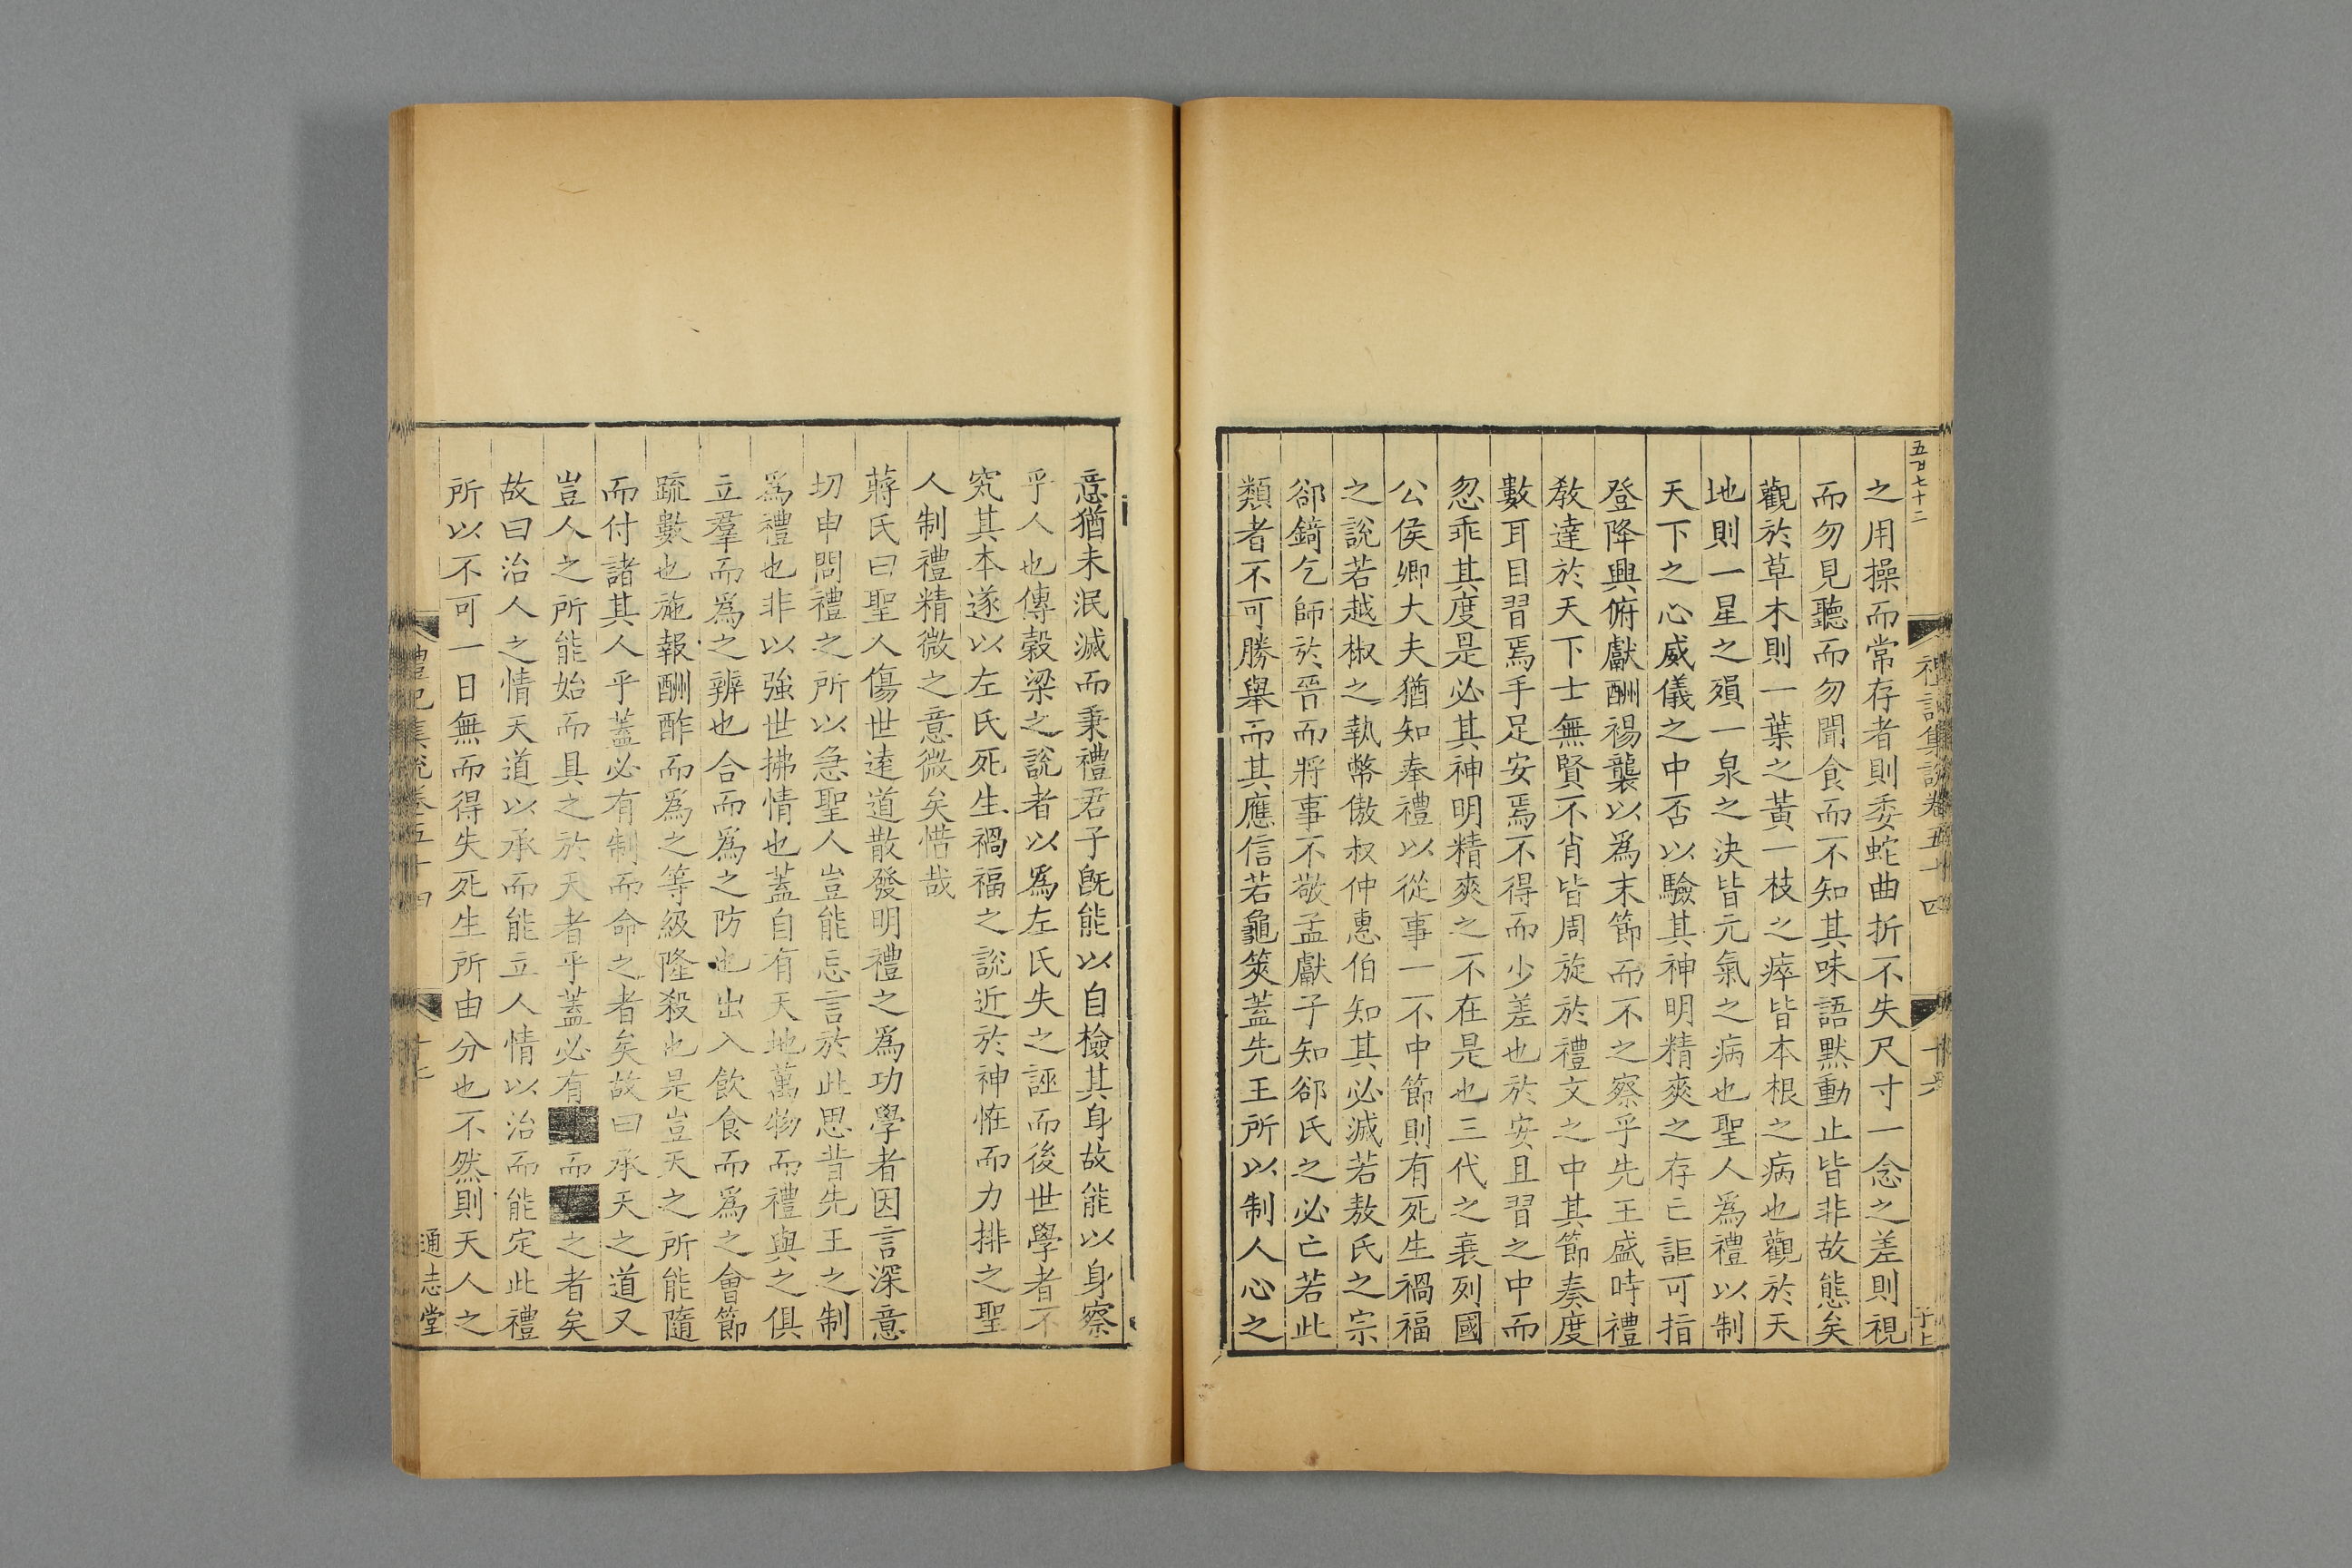 五百七十二
禮記集說卷五十四
之用操而常存者則委蛇曲折不失尺寸一念之差則視
而勿見聽而勿聞食而不知其味語默動止皆非故態矣
觀於草木則一葉之黃一枝之瘁皆本根之病也觀於天
地則一星之殞一泉之決皆元氣之病也聖人爲禮以制
天下之心威儀之中否以驗其神明精爽之存亡詎可指
登降興俯獻酬裼襲以爲末節而不之察乎先王盛時禮
敎達於天下士無賢不肖皆周旋於禮文之中其節奏度
數耳目習焉手足安焉不得而少差也於安且習之中而
忽乖其度是必其神明精爽之不在是也三代之衰列國
公侯卿大夫猶知奉禮以從事一不中節則有死生禍福
之說若越椒之執幣傲叔仲惠伯知其必滅若敖氏之宗
郤錡乞師於晉而將事不敬孟獻子知郤氏之必亡若此
類者不可勝舉而其應信若龜筴蓋先王所以制人心之
意猶未泯滅而秉禮君子旣能以自檢其身故能以身察
乎人也傳穀梁之說者以爲左氏失之誣而後世學者不
究其本遂以左氏死生禍福之說近於神怪而力排之聖
人制禮精微之意微矣惜哉
蔣氏曰聖人傷世達道散發明禮之爲功學者因言深意
切申問禮之所以急聖人豈能忘言於此思昔先王之制
爲禮也非以強世拂情也蓋自有天地萬物而禮與之俱
立羣而爲之辨也合而爲之防也出入飲食而爲之會節
疏數也施報酬酢而爲之等級隆殺也是豈天之所能隨
而付諸其人乎蓋必有制而命之者矣故曰承天之道又
豈人之所能始而具之於天者乎蓋必有■而■之者矣
故曰治人之情天道以承而能立人情以治而能定此禮
所以不可一日無而得失死生所由分也不然則天人之
禮記集說卷五十四
通志堂